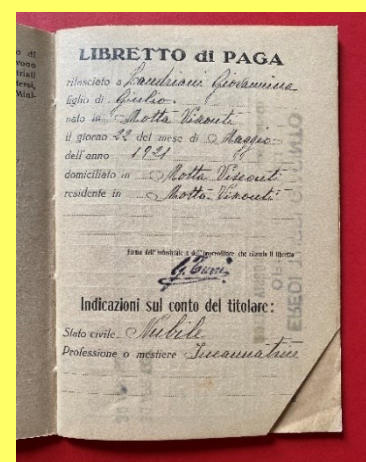 LIBRETTO di PAGA
rilasciato a Landriani Giovannina
figlio di Giulio
nato in Motta Visconti
il giorno 22 del mese di Maggio
dell'anno 1921
domiciliato in Motta Visconti
residente in Motta Visconti
Firma dell'industriale o dell'imprenditore che rilascia il libretto
Indicazioni sul conto del titolare:
Stato civile Nubile
Professione o mestiere Incannatrice